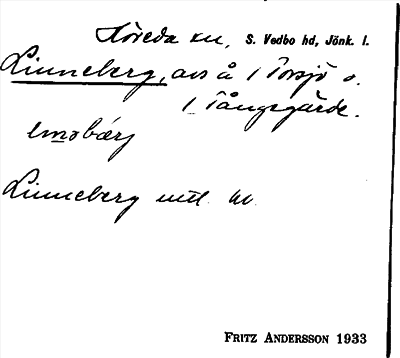 Höreda sn, S. Vedbo hd, Jönk. l.
Linneberg, avs å 1 Torsjö o.
1 Tångegärde.
Linneberg
FRITZ ANDERSSON 1933